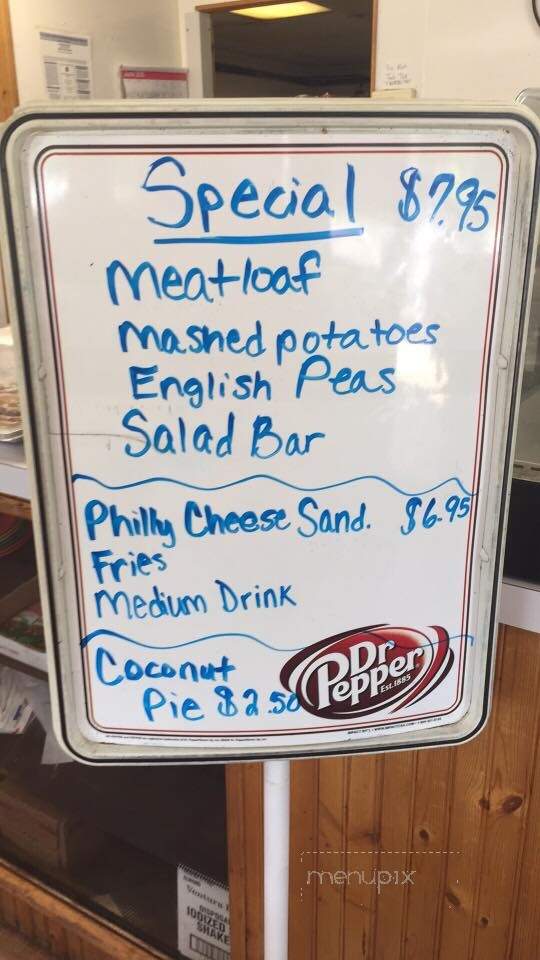 Special $7.95
Meatloaf
Mashed potatoes
English Peas
Salad Bar
Philly Cheese Sand. $6.95
Fries
Medium Drink
Coconut
Pie $2.50
Dr Pepper
Est. 1885
menupix
IODIZED
SHAKE